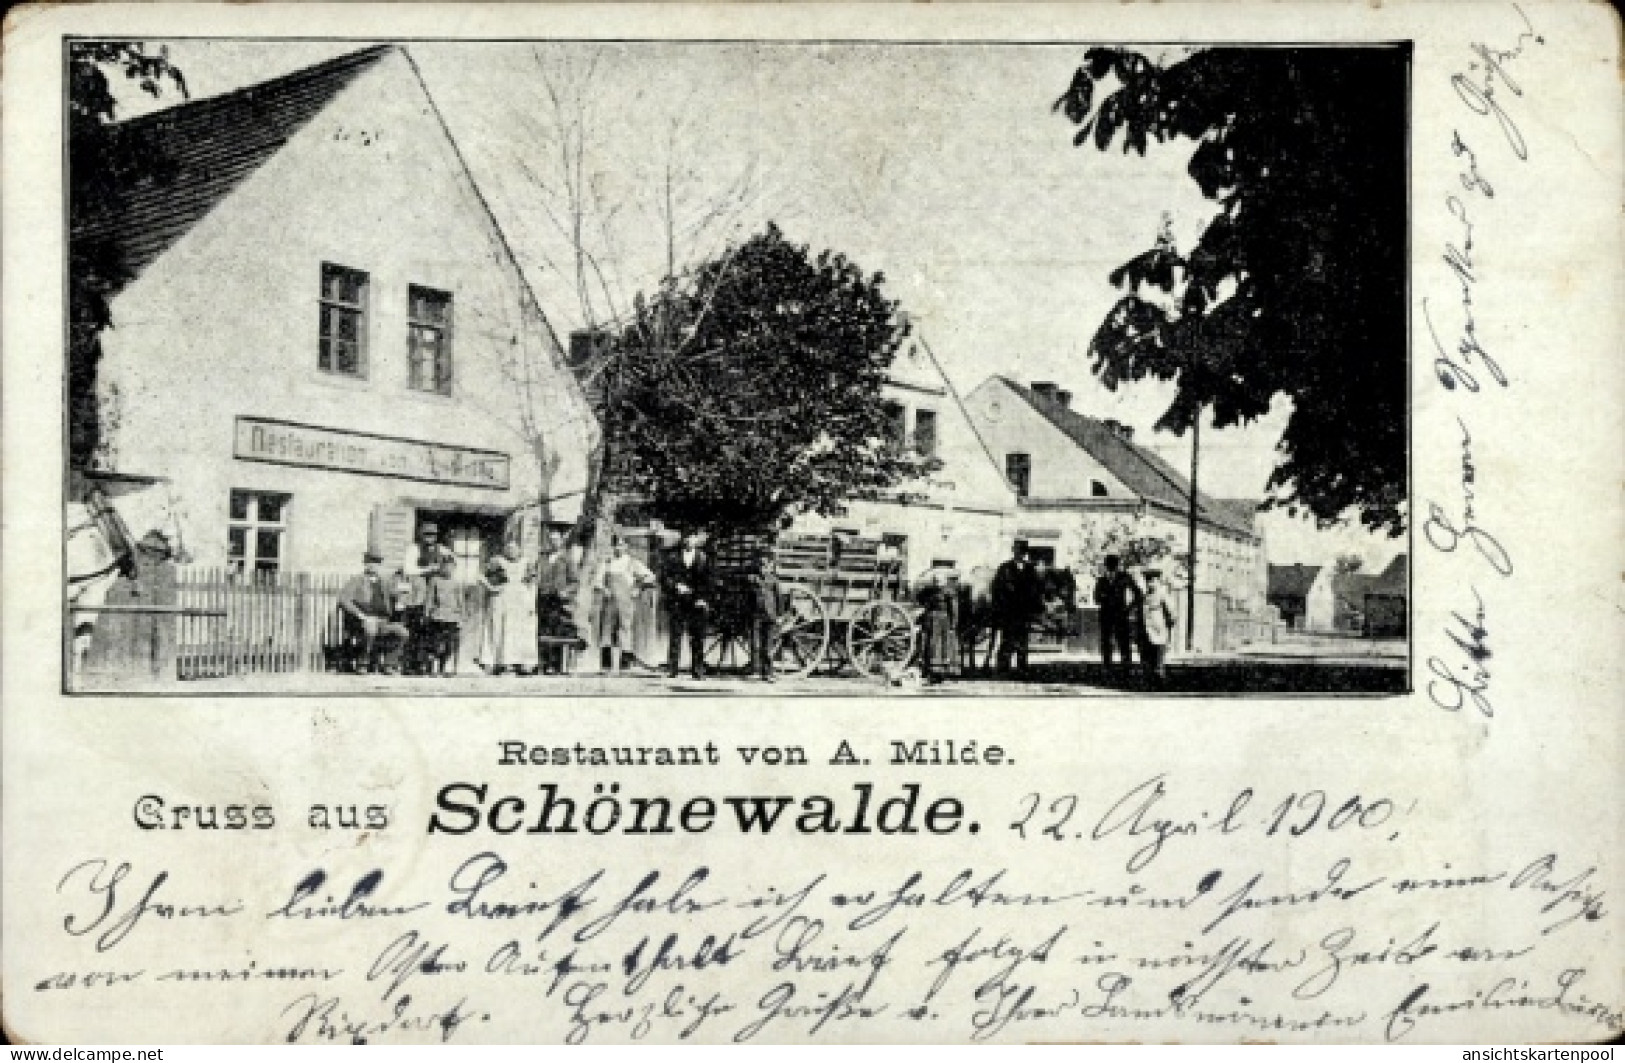 Restauration von
Restaurant von A. Milde.
Gruss aus Schönewalde. 22. April 1900!
Ihren lieben Brief habe ich erhalten und sende eine Ansicht
von meinem Oster Aufenthalt Brief folgt in nächster Zeit von
Rixdorf. Herzliche Grüße v. Ihrer Landsmännin Emilie
Bitte Herrn zu Grüßen.
www.delcampe.net
ansichtskartenpool